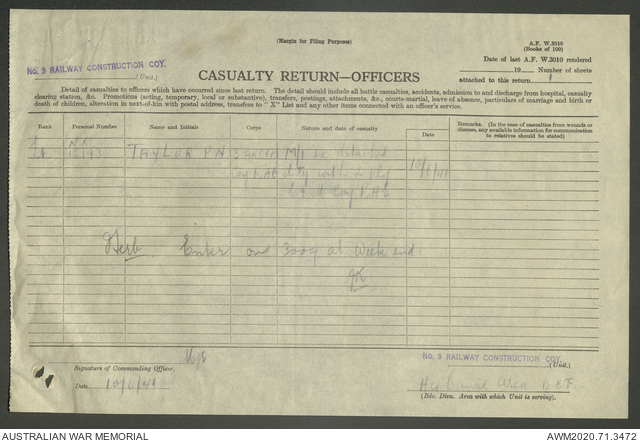 (Margin for Filing Purposes)
A.F. W.3010
(Books of 100)
No. 3 RAILWAY CONSTRUCTION COY.
(Unit.)
Date of last A.F. W.3010 rendered
19 Number of sheets
attached to this return 1
CASUALTY RETURN—OFFICERS
Detail of casualties to officers which have occurred since last return. The detail should include all battle casualties, accidents, admission to and discharge from hospital, casualty
clearing station, &c. Promotions (acting, temporary, local or substantive), transfers, postings, attachments, &c., court-martial, leave of absence, particulars of marriage and birth or
death of children, alteration in next-of-kin with postal address, transfers to "X" List and any other items connected with an officer's service.
Rank
Personal Number
Name and Initials
Corps
Nature and date of casualty
Date
Remarks. (In the case of casualties from wounds or
disease, any available information for communication
to relatives should be stated)
TAYLOR P.N. detached
duty with
10/6/41
Herb Enter on 3009 at Week end.
Signature of Commanding Officer.
Date 10/6/41
No. 3 RAILWAY CONSTRUCTION COY.
(Unit.)
Area
(Bde. Divn. Area with which Unit is serving).
AUSTRALIAN WAR MEMORIAL
AWM2020.71.3472